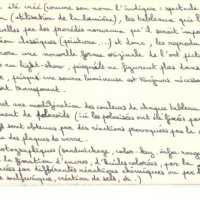 été créé (comme son nom l'indique : spectacle
(utilisation de la lumière), les tableaux que l
elles par des procédés nouveaux qu'il serait impo
classiques (peinture...) et donc, les reprodu
une nouvelle forme originale de l'art
light-show, puisqu'elle ne figurent plus
, puisque une source lumineuse est toujours nécess
transparent.
une modification des couleurs de chaque tableau
de polaroïds (les polarisées ont été fixées pa
sont obtenus par des réactions provoquées par la
des plaques de verre.
otographiques (sandwichage, color-key, infra-rouge
la fixation d'encres, d'huiles colorées, par la
par différentes réactions chimiques ou par
sulfurique, création de sels, etc..)